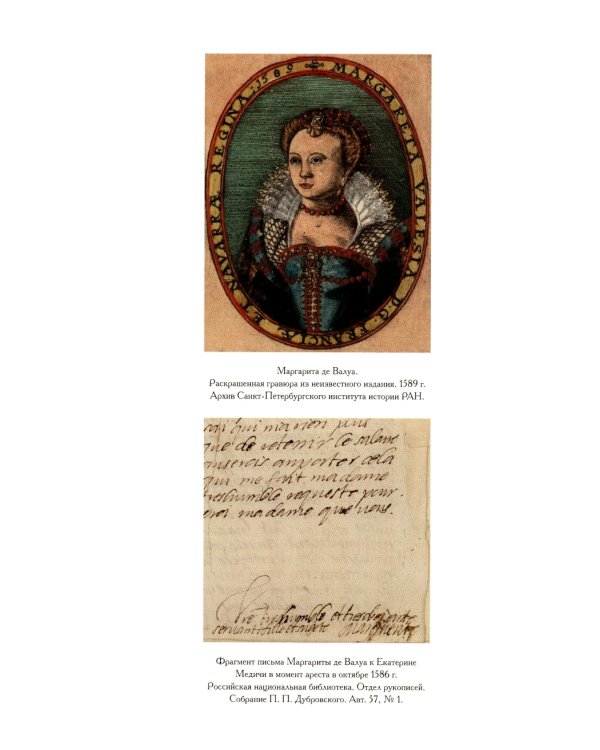 MARGARETA VALESIA D.G. FRANCIÆ ET NAVARRÆ REGINA. 1589
Маргарита де Валуа.
Раскрашенная гравюра из неизвестного издания. 1589 г.
Архив Санкт-Петербургского института истории РАН.
qui
que de retenir le
cela
qui me fait madame
treshumble requeste pour
madame que vous.
treshumble et tres
servante fille et
Фрагмент письма Маргариты де Валуа к Екатерине
Медичи в момент ареста в октябре 1586 г.
Российская национальная библиотека. Отдел рукописей.
Собрание П. П. Дубровского. Авт. 57, № 1.